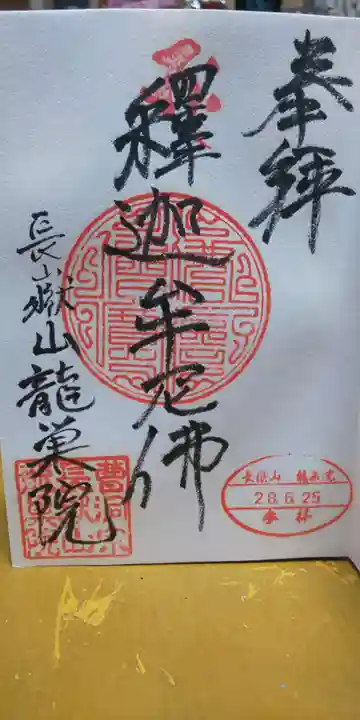 奉拝
釋迦牟尼佛
長嶽山龍巣院
長嶽山 龍巣院
28.6.25
参拝